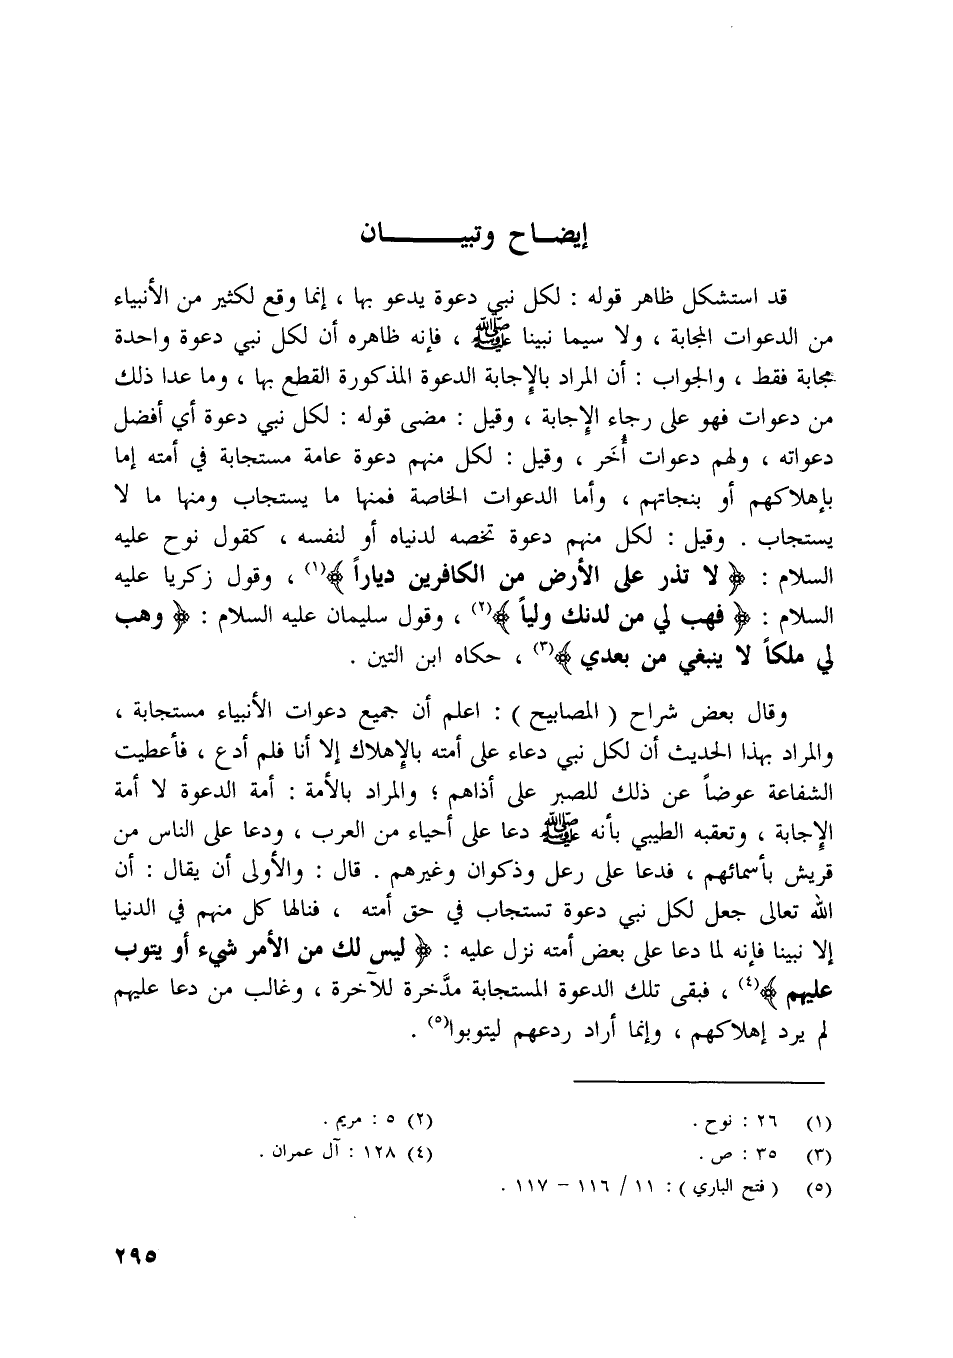 إيضـاح وتبيـــــــان
قد استشكل ظاهر قوله : لكل نبي دعوة يدعو بها ، إنما وقع لكثير من الأنبياء
من الدعوات المجابة ، ولا سيما نبينا ﷺ ، فإنه ظاهره أن لكل نبي دعوة واحدة
مجابة فقط ، والجواب : أن المراد بالإجابة الدعوة المذكورة القطع بها ، وما عدا ذلك
من دعوات فهو على رجاء الإجابة ، وقيل : مضى قوله : لكل نبي دعوة أي أفضل
دعواته ، ولهم دعوات أُخَر ، وقيل : لكل منهم دعوة عامة مستجابة في أمته إما
بإهلاكهم أو بنجاتهم ، وأما الدعوات الخاصة فمنها ما يستجاب ومنها ما لا
يستجاب . وقيل : لكل منهم دعوة تخصه لدنياه أو لنفسه ، كقول نوح عليه
السلام : ﴿ لا تذر على الأرض من الكافرين دياراً ﴾(١) ، وقول زكريا عليه
السلام : ﴿ فهب لي من لدنك ولياً ﴾(٢) ، وقول سليمان عليه السلام : ﴿ وهب
لي ملكاً لا ينبغي من بعدي ﴾(٣) ، حكاه ابن التين .
وقال بعض شراح ( المصابيح ) : اعلم أن جميع دعوات الأنبياء مستجابة ،
والمراد بهذا الحديث أن لكل نبي دعاء على أمته بالإهلاك إلا أنا فلم أدع ، فأعطيت
الشفاعة عوضاً عن ذلك للصبر على أذاهم ؛ والمراد بالأمة : أمة الدعوة لا أمة
الإجابة ، وتعقبه الطيبي بأنه ﷺ دعا على أحياء من العرب ، ودعا على الناس من
قريش بأسمائهم ، فدعا على رعل وذكوان وغيرهم . قال : والأولى أن يقال : أن
الله تعالى جعل لكل نبي دعوة تستجاب في حق أمته ، فنالها كل منهم في الدنيا
إلا نبينا فإنه لما دعا على بعض أمته نزل عليه : ﴿ ليس لك من الأمر شيء أو يتوب
عليهم ﴾(٤) ، فبقى تلك الدعوة المستجابة مدَّخرة للآخرة ، وغالب من دعا عليهم
لم يرد إهلاكهم ، وإنما أراد ردعهم ليتوبوا(٥) .
(١) ٢٦ : نوح . (٢) ٥ : مريم .
(٣) ٣٥ : ص . (٤) ١٢٨ : آل عمران .
(٥) ( فتح الباري ) : ١١ / ١١٦ – ١١٧ .
٢٩٥